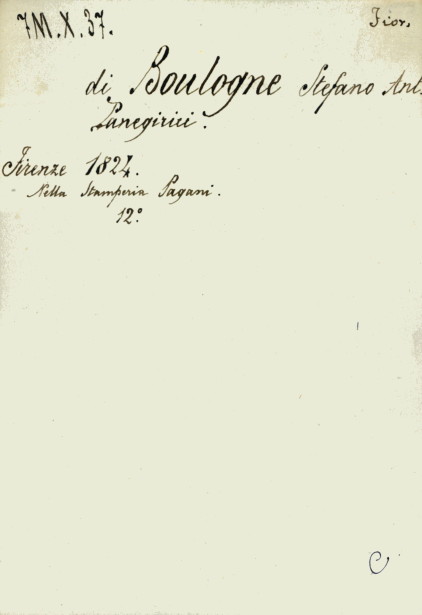 7M.X.37.
Fior.
di Boulogne Stefano Ant.
Panegirici.
Firenze 1824.
Nella Stamperia Pagani.
12°
C